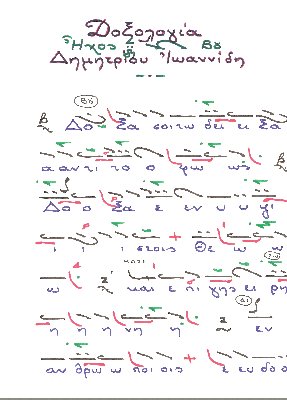 Δοξολογία
Ἦχος Βου
Δημητρίου Ἰωαννίδη
Δο ξα σοι τω δει ξα
α αν τι το ο φω ως
Δο ο ξα ε εν υ υ ψι
ι ι ι στοις + Θε ω ω
ω και ε πι γης ει ρη
η η η νη η εν
αν θρω ω ποι οις + ε ευ δο ο